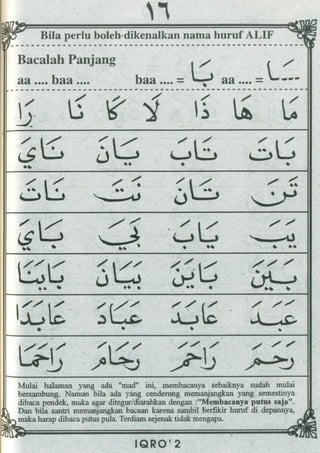 ١٦
Bila perlu boleh dikenalkan nama huruf ALIF
Bacalah Panjang
aa .... baa .... baa .... = بَا aa .... = ـَـا
مَا هَا ذَا لَا كَا نَا رَا
بَاتَ تَابَ بَيَانَ نَايَ
تَنَ تَانَ نَتَ نَاتَ
يَبَ يَابَ بَيَ بَايَ
بَيَنَ بَايَنَ بَيَانَ بَايَنَا
عَبَدَ عَابَدَ عَبَادَ عَابَدَا
رَحَمَ رَاحَمَ رَحَامَ رَاحَمَا
Mulai halaman yang ada "mad" ini, membacanya sebaiknya sudah mulai
bersambung. Namun bila ada yang cenderung memanjangkan yang semestinya
dibaca pendek, maka agar ditegur/diarahkan dengan :"Membacanya putus saja".
Dan bila santri memanjangkan bacaan karena sambil berfikir huruf di depannya,
maka harap dibaca putus pula. Terdiam sejenak tidak mengapa.
IQRO' 2